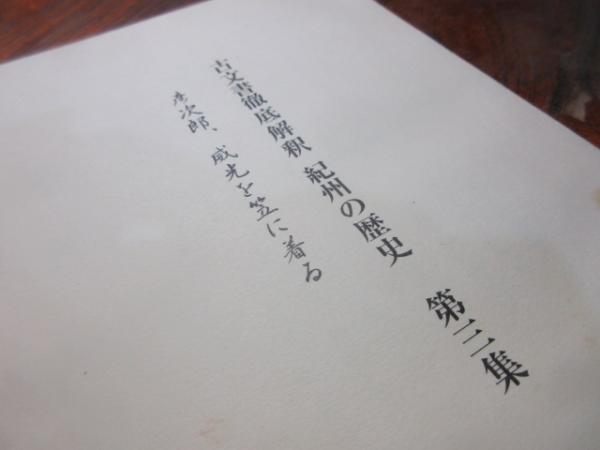 古文書徹底解釈 紀州の歴史 第三集
彦次郎、威光を笠に着る